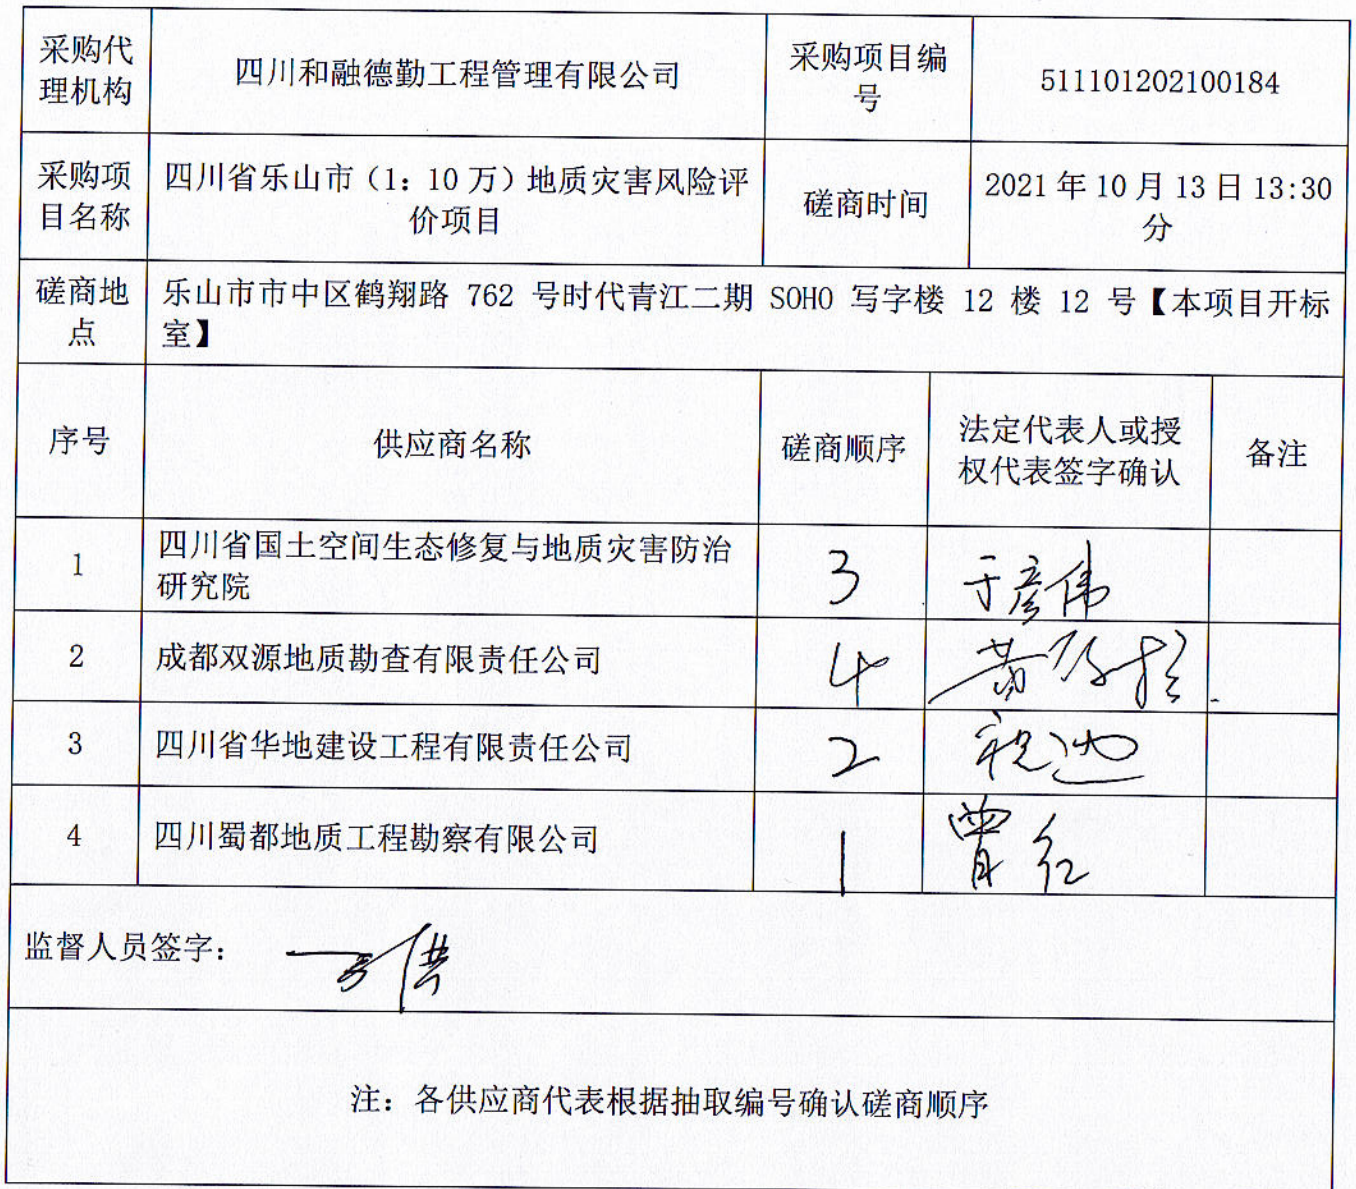 采购代
理机构
四川和融德勤工程管理有限公司
采购项目编
号
511101202100184
采购项
目名称
四川省乐山市（1：10 万）地质灾害风险评
价项目
磋商时间
2021 年 10 月 13 日 13:30
分
磋商地
点
乐山市市中区鹤翔路 762 号时代青江二期 SOHO 写字楼 12 楼 12 号【本项目开标
室】
序号
供应商名称
磋商顺序
法定代表人或授
权代表签字确认
备注
1
四川省国土空间生态修复与地质灾害防治
研究院
3
于彦伟
2
成都双源地质勘查有限责任公司
4
3
四川省华地建设工程有限责任公司
2
4
四川蜀都地质工程勘察有限公司
1
曾红
监督人员签字：
注：各供应商代表根据抽取编号确认磋商顺序